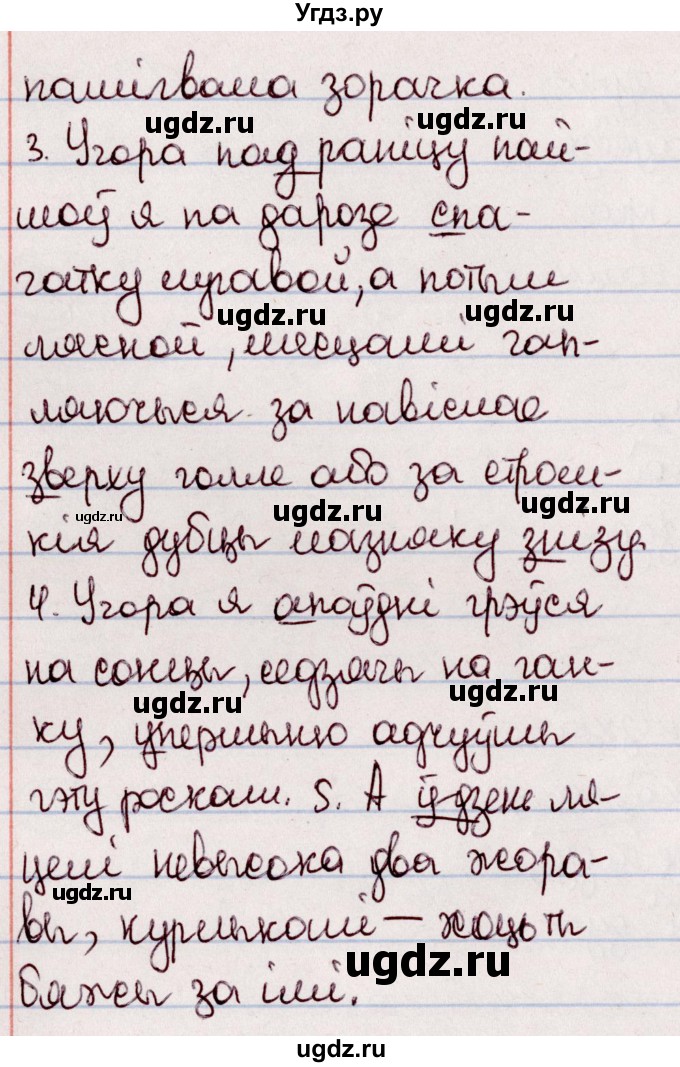 Угдз.ру
памігвала зорачка.
3. Учора пад раніцу пай-
шоў я па дарозе спа-
чатку мурожнай, а потым
лясной, месцамі чап-
ляючыся за навіслае
зверху голле або за стром-
кія дубцы мазняку знізу.
4. Учора я апоўдні грэўся
на сонцы, седзячы на ган-
ку, упершыню адчуўшы
гэту роскаш. 5. А ўдзень ля-
целі невысока два жора-
вы, курлыкалі — хоць ты
бяжы за імі.
ugdz.ru
ugdz.ru
ugdz.ru
ugdz.ru
ugdz.ru
ugdz.ru
ugdz.ru
ugdz.ru
ugdz.ru
ugdz.ru
ugdz.ru
ugdz.ru
ugdz.ru
ugdz.ru